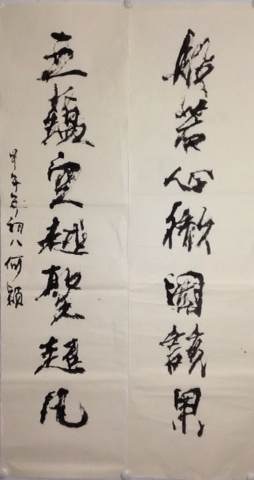 般若心徹圓諸果
五蘊空越聖超凡
甲午年初八何穎